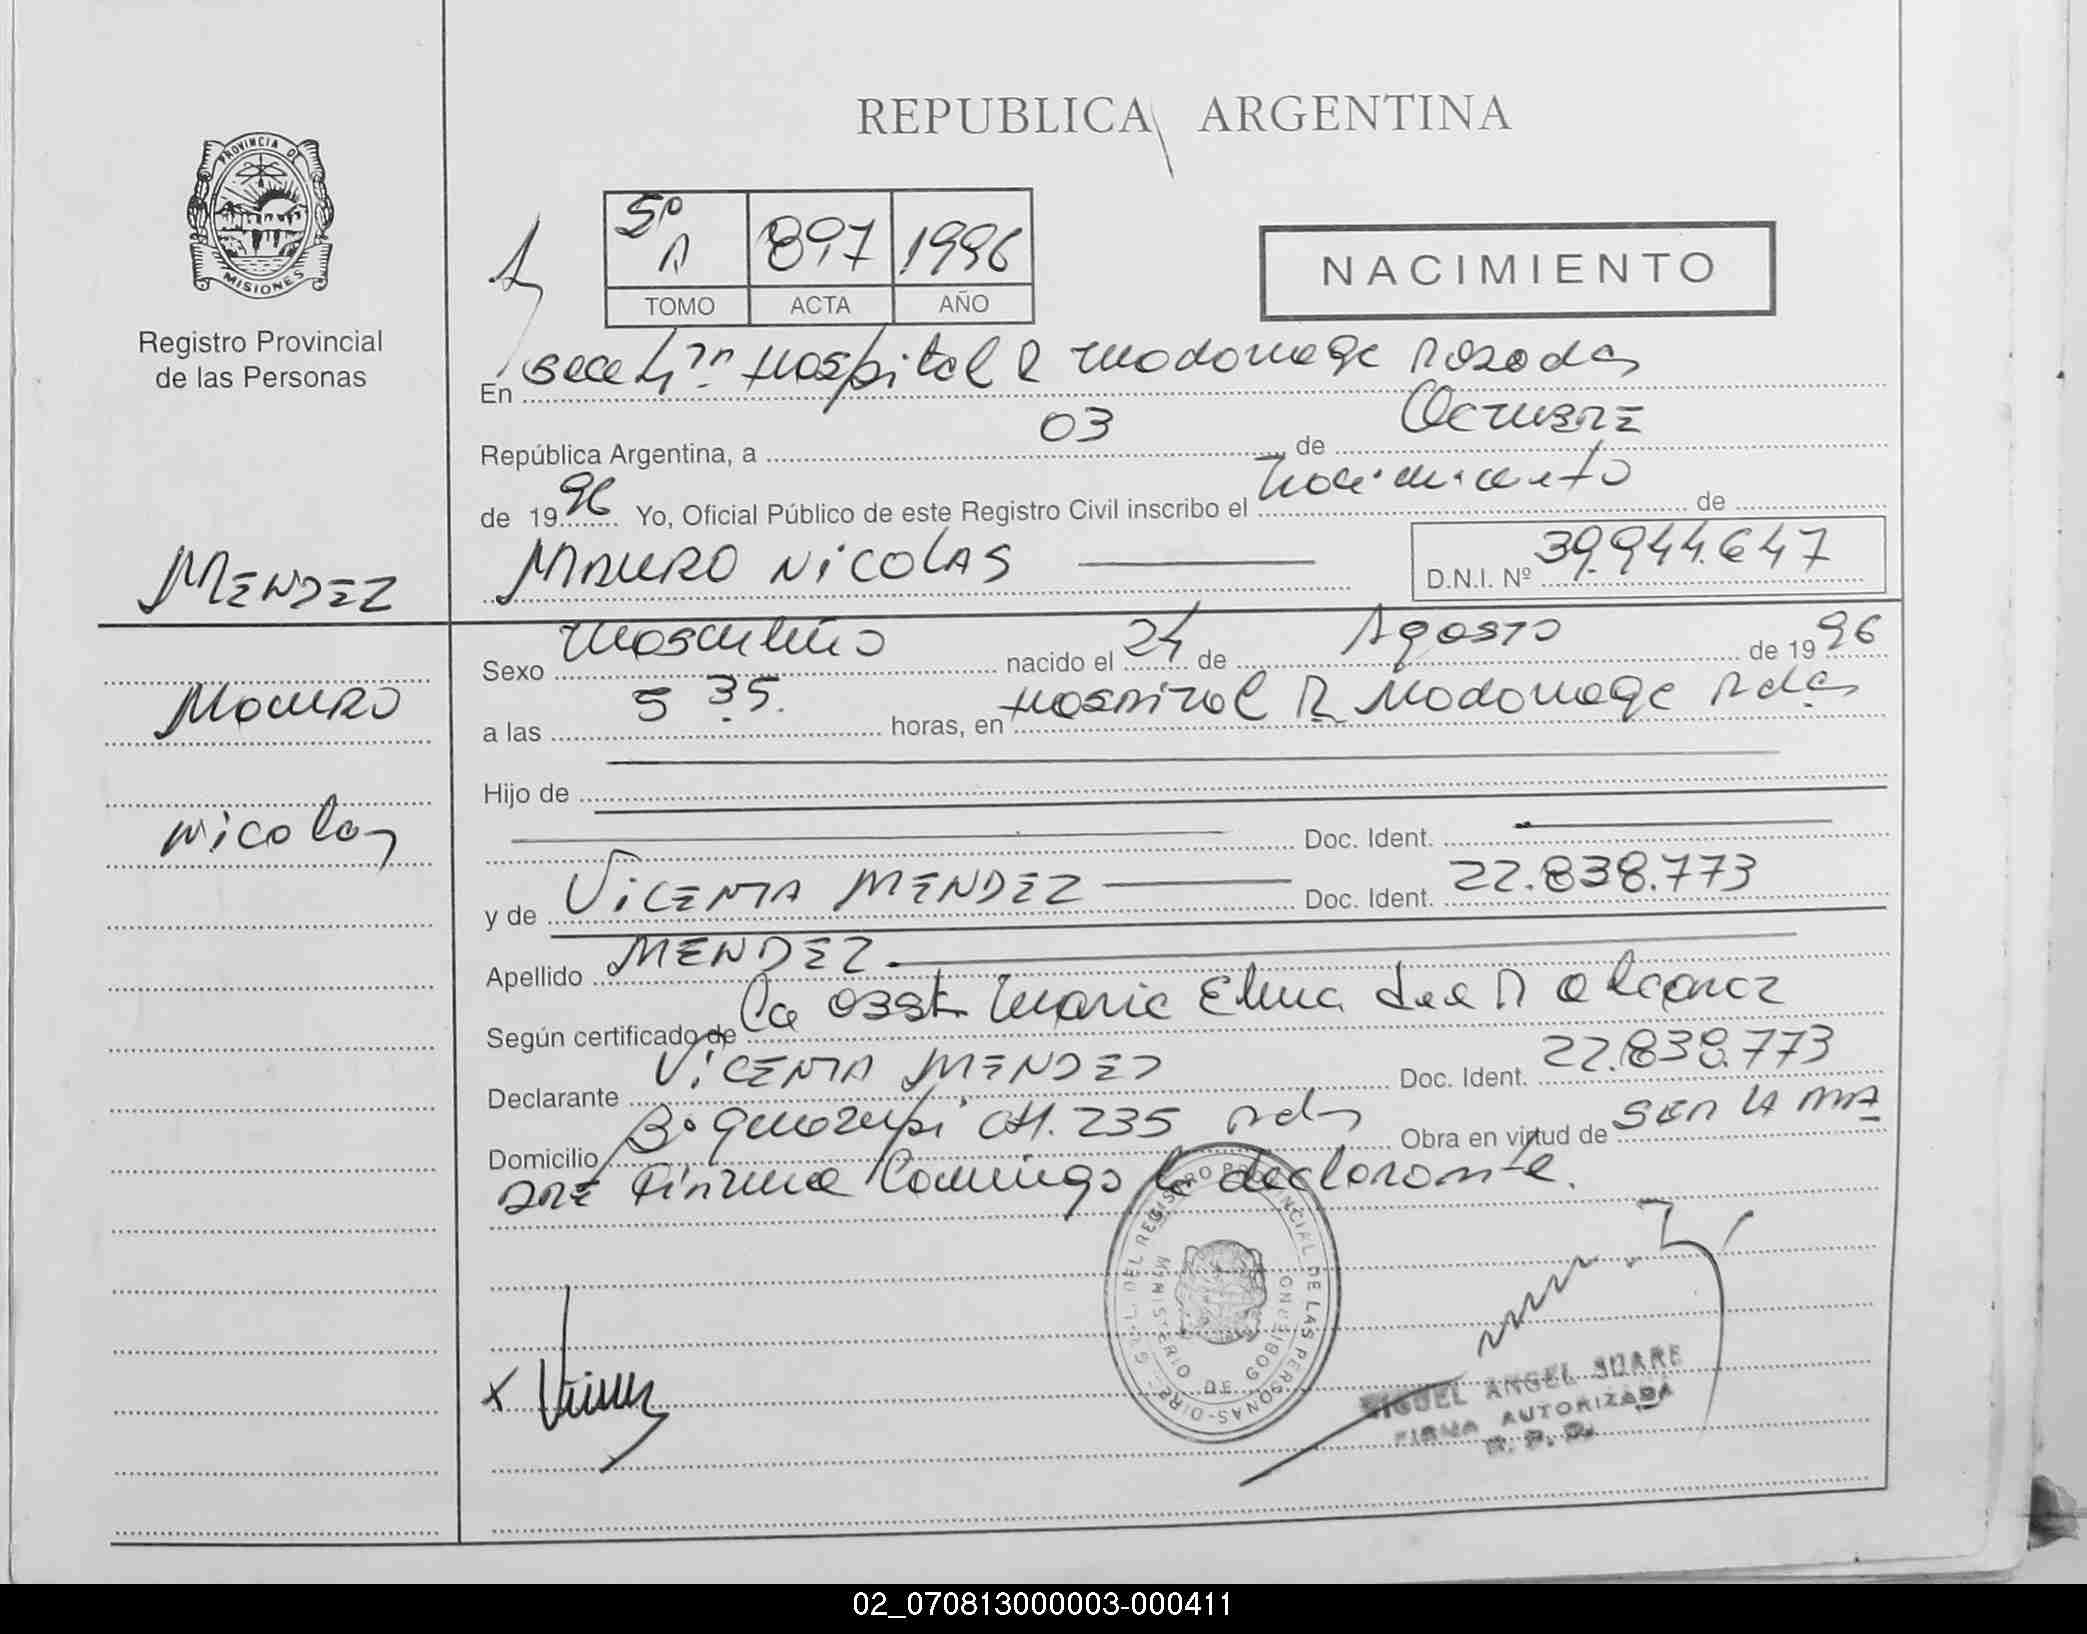 REPUBLICA ARGENTINA
PROVINCIA DE
MISIONES
Registro Provincial
de las Personas
5º
A 897 1996
TOMO ACTA AÑO
NACIMIENTO
En Secc 4ta Hospital R Madariaga Posadas
República Argentina, a 03 de Octubre
de 1996 Yo, Oficial Público de este Registro Civil inscribo el nacimiento de
MENDEZ
MAURO NICOLAS D.N.I. Nº 39.944.647
Mauro
Nicolas
Sexo masculino nacido el 24 de Agosto de 1996
a las 5 35. horas, en Hospital R Madariaga Pdas
Hijo de
Doc. Ident.
y de VICENTA MENDEZ Doc. Ident. 22.838.773
Apellido MENDEZ
Según certificado de la obst Maria Elena de Alcaraz
Declarante VICENTA MENDEZ Doc. Ident. 22.838.773
Domicilio Bº CH. 235 Pdas Obra en virtud de SER LA MA
DRE Firma Conmigo la declarante.
DIR. GRAL. DEL REGISTRO PROVINCIAL DE LAS PERSONAS
MINISTERIO DE GOBIERNO
x
MIGUEL ANGEL SUARE
FIRMA AUTORIZADA
R. P. P.
02_070813000003-000411